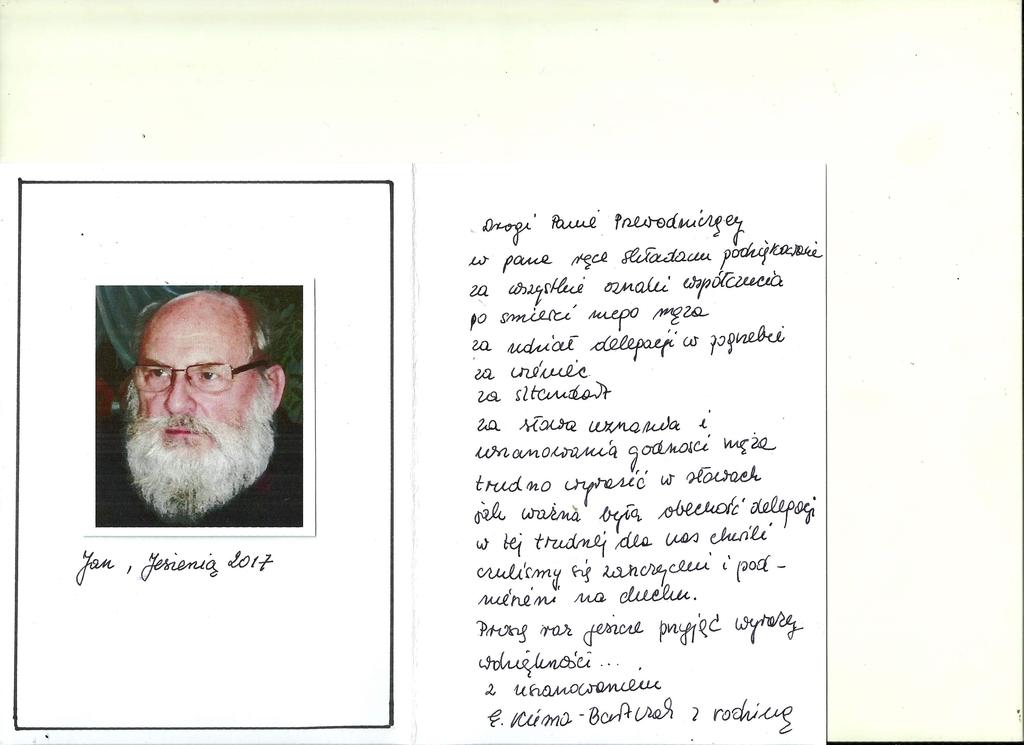 Jan, Jesienią 2017
Drogi Panie Przewodniczący
w pana ręce składam podziękowanie
za wszystkie oznaki współczucia
po śmierci mego męża
za udział delegacji w pogrzebie
za wieniec
za sztandar
za słowa uznania i
uszanowania godności męża
trudno wyrazić w słowach
jak ważna była obecność delegacji
w tej trudnej dla nas chwili
czuliśmy się zaszczyceni i pod-
niesieni na duchu.
Proszę raz jeszcze przyjąć wyrazy
wdzięczności...
z uszanowaniem
E. Klima-Bartczak z rodziną